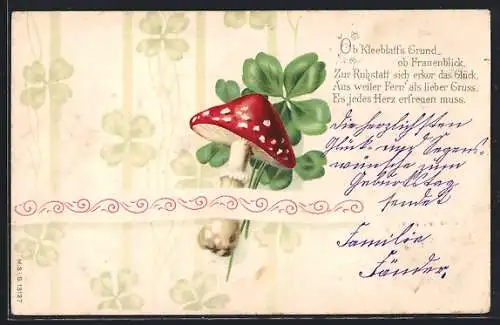 Ob Kleeblatt's Grund
ob Frauenblick,
Zur Ruhstatt sich erkor das Glück,
Aus weiter Fern' als lieber Gruss,
Es jedes Herz erfreuen muss.
Die herzlichsten
Glück- und Segens-
wünsche zum
Geburtstag
sendet
Familie
M.S.i.B. 13127